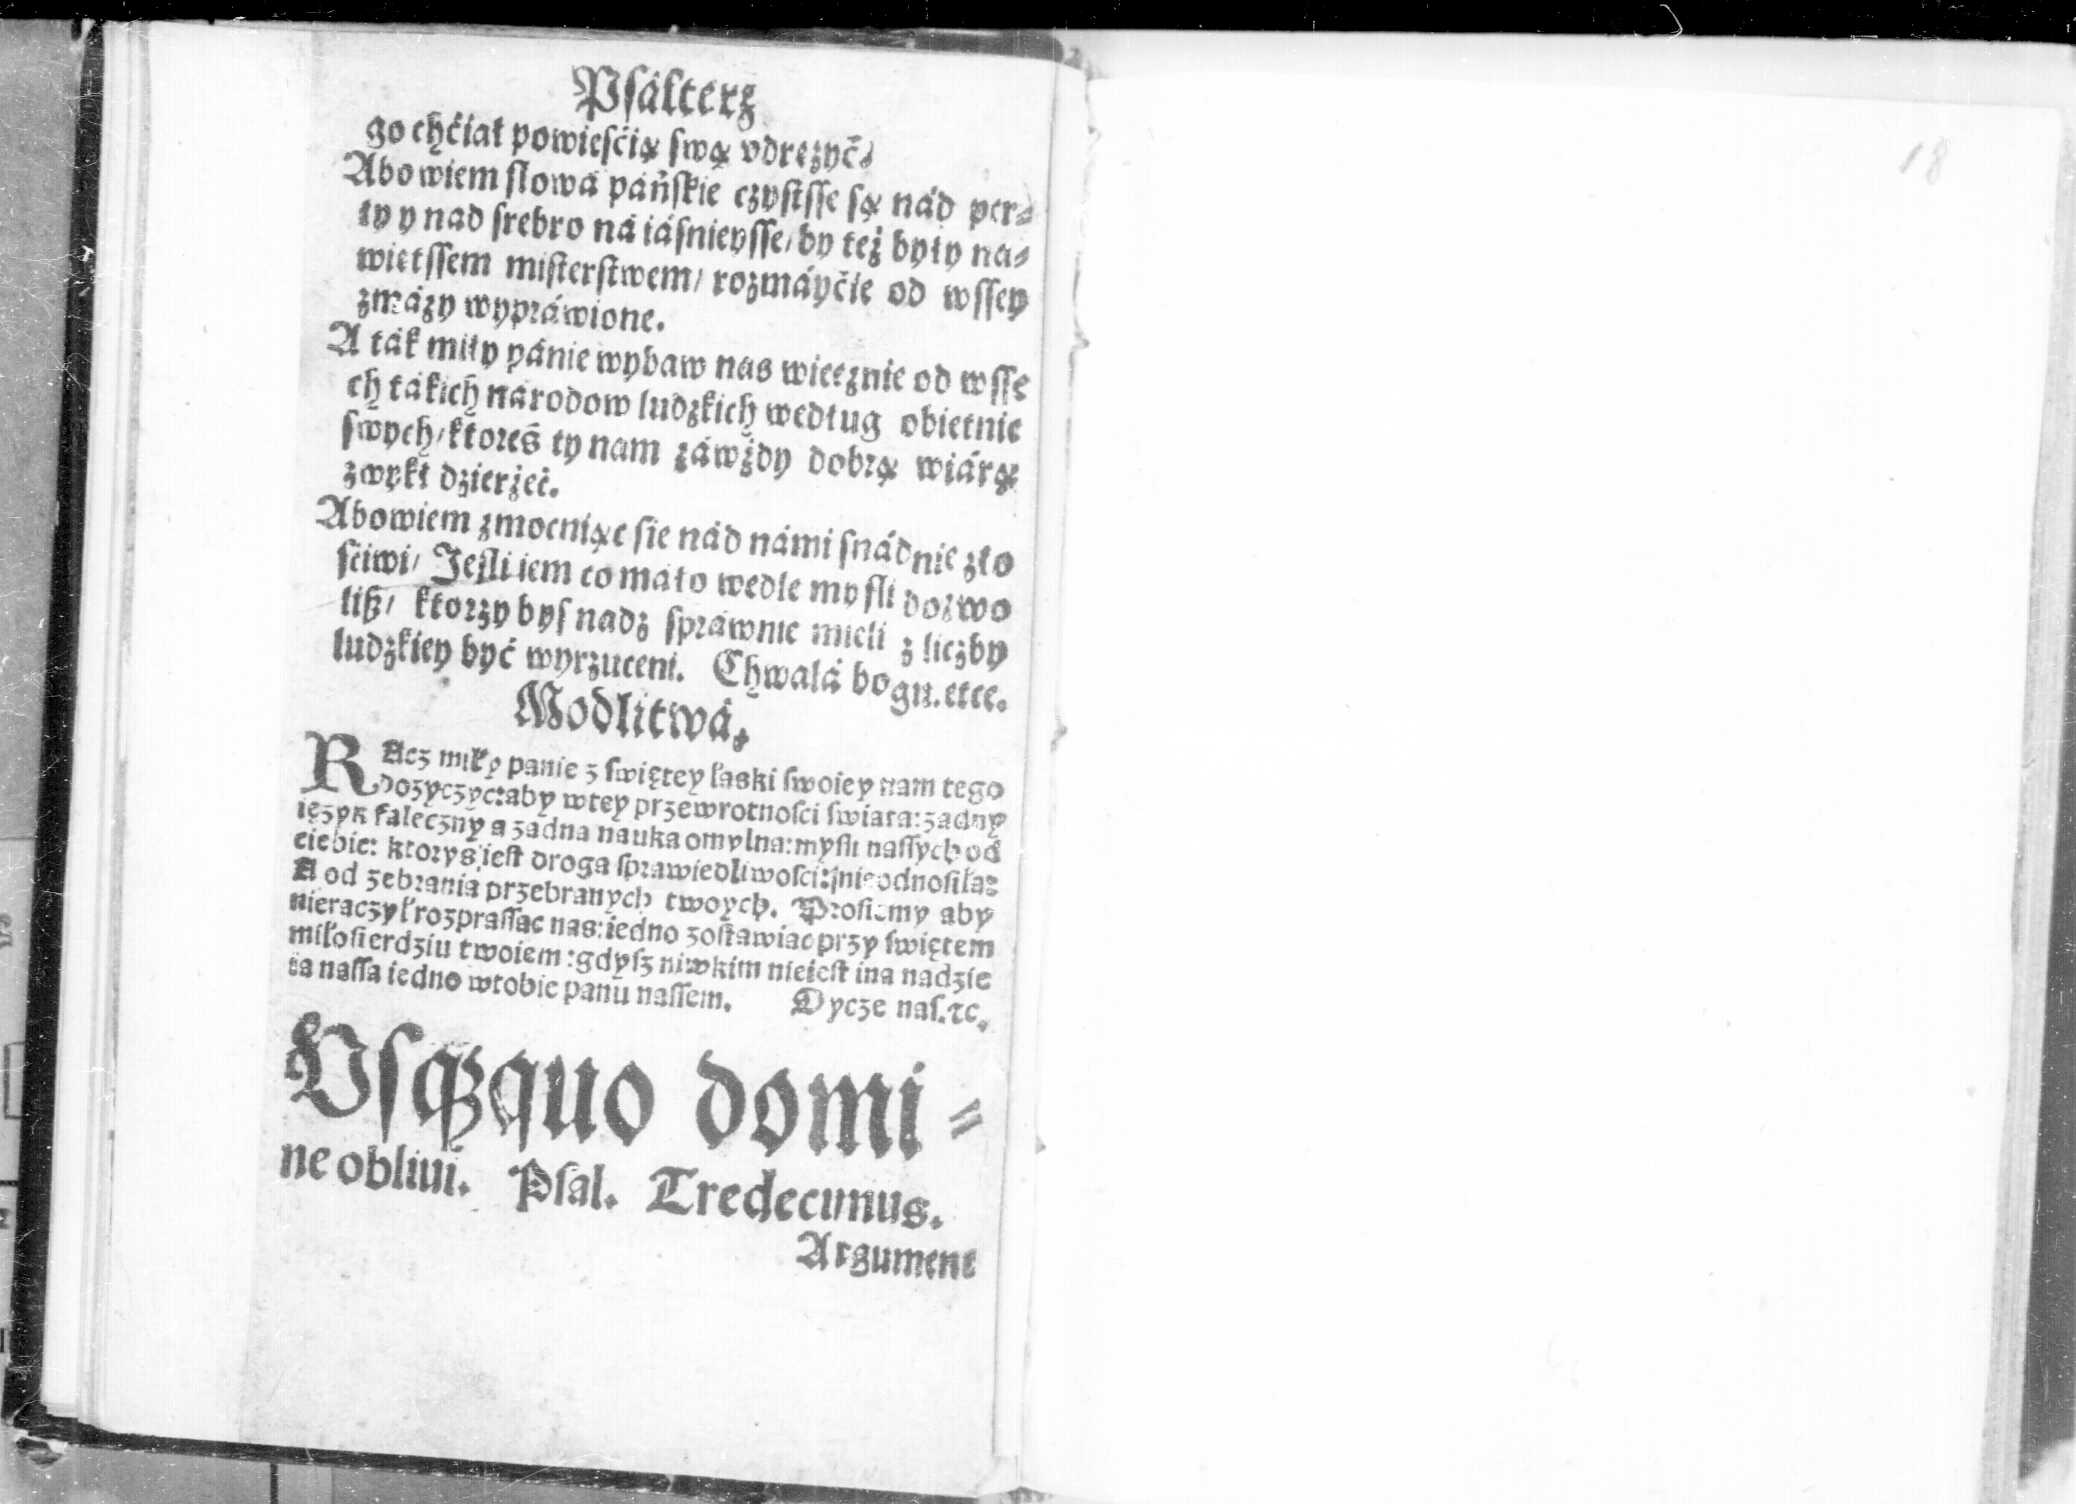 Psálterz
go chćiał powieśćią swą vdręzyć.
Abowiem słowá páńskie czystsse są nád per⸗
ły y nad srebro ná iáśnieysse/ by też były na⸗
wietssem misterstwem/ rozmáyćie od wssey
zmázy wypráwione.
A ták miły pánie wybaw nas wiecznie od wssę
ch tákich národow ludzkich według obietnic
swych/ ktoreś ty nam záwżdy dobrą wiárą
zwykł dzierżeć.
Abowiem zmocniąc sie nád námi snádnie zło
śćiwi/ Jeśli iem co máło wedle myśli dozwo
lisz/ ktorzy bys nadz spráwnie mieli z liczby
ludzkiey być wyrzuceni. Chwałá bogu. etcę.
Modlitwá.
RAcz miły panie z swiętey łaski swoiey nam tego
dozyczyc: aby wtey przewrotnosci swiata: zadny
ięzyk faleczny a zadna nauka omylna: mysli nassych od
ciebie: ktorys iest droga sprawiedliwosci: nie odnosiła:
A od zebrania przebranych twoych. Prosiemy aby
nieraczył rozprassac nas: iedno zostawiac przy swiętem
miłosierdziu twoiem: gdysz niwkim nieiest ina nadzie
ia nassa iedno wtobie panu nassem. Oycze nas. ⁊c.
Vsqꝫquo domi⸗
ne obliui. Psal. Tredecimus.
Argument
18